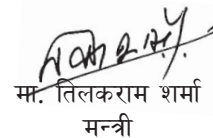 मा. तिलकराम शर्मा
मन्त्री